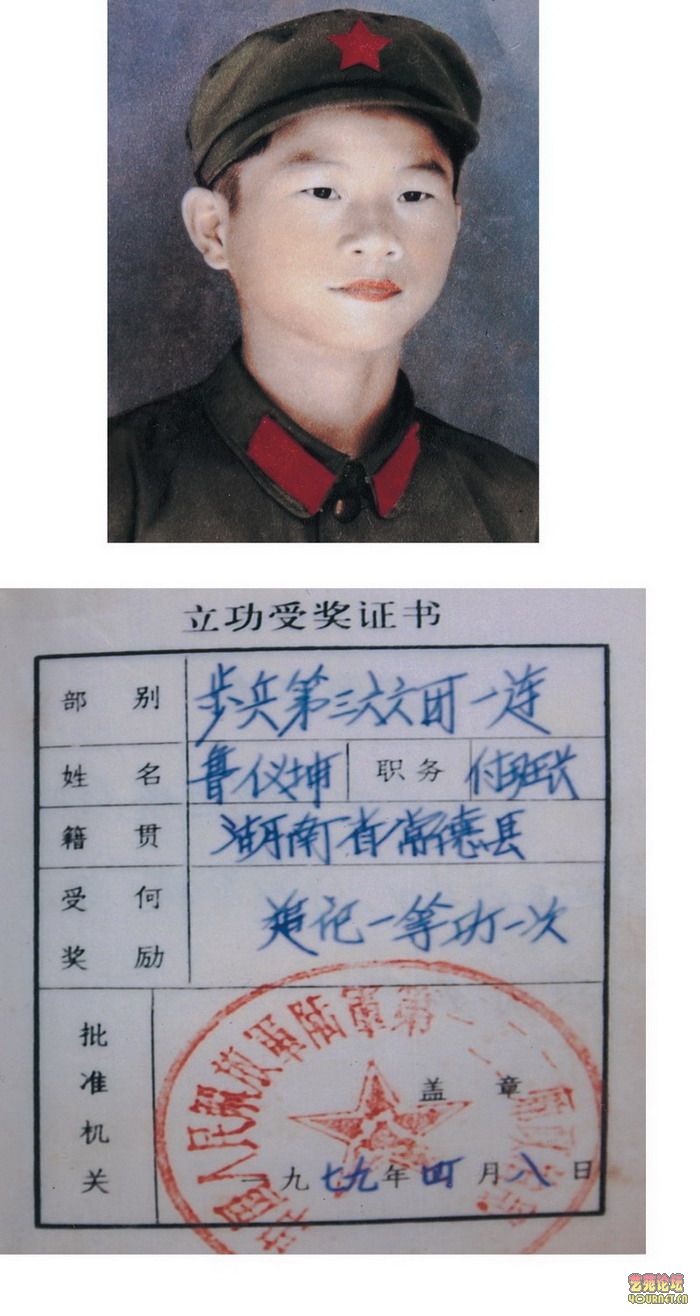 立功受奖证书
部 别 步兵第三六六团一连
姓 名 鲁仪坤 职务 付班长
籍 贯 湖南省常德县
受何奖励 追记一等功一次
批准机关 盖 章
中国人民解放軍陆軍第一
一九七九年四月八日
艺苑论坛
4OURNET.CN